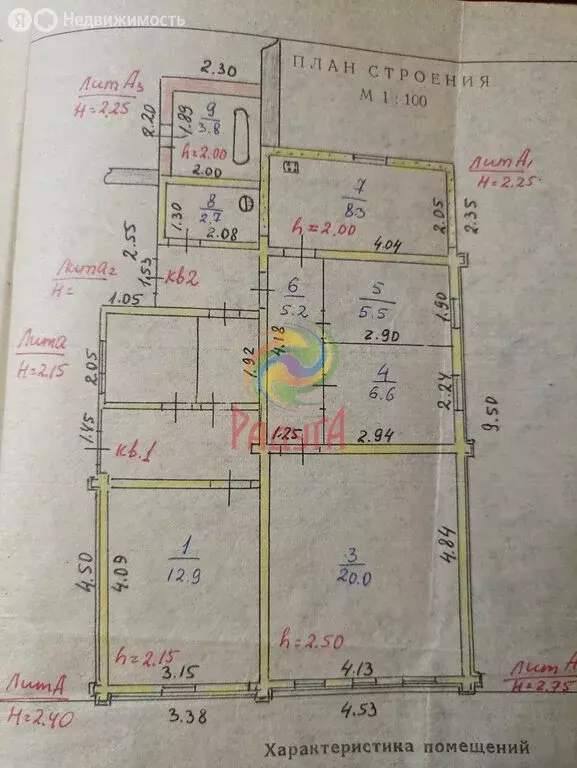 Я Недвижимость
ПЛАН СТРОЕНИЯ
М 1:100
2.30
Лит А3
H=2,25
2.20
1.89
9
3.8
h=2.00
2.00
Лит А1
H=2.25
7
8.3
h=2.00
4.04
2.05
2.35
8
2.7
1.30
2.08
2.55
1,53
кв2
Лит а2
H=
1.05
6
5.2
4.18
5
5.5
2.90
1.90
Лит а
H=2.15
2.05
1.92
4
6.6
2.24
9.50
РАДУГА
1.25
2.94
1.45
кв.1
1
12.9
4.50
4.09
h=2.15
3.15
3
20.0
4.84
h=2.50
4.13
Лит А
H=2.40
3.38
4.53
Лит А
H=2.75
Характеристика помещений